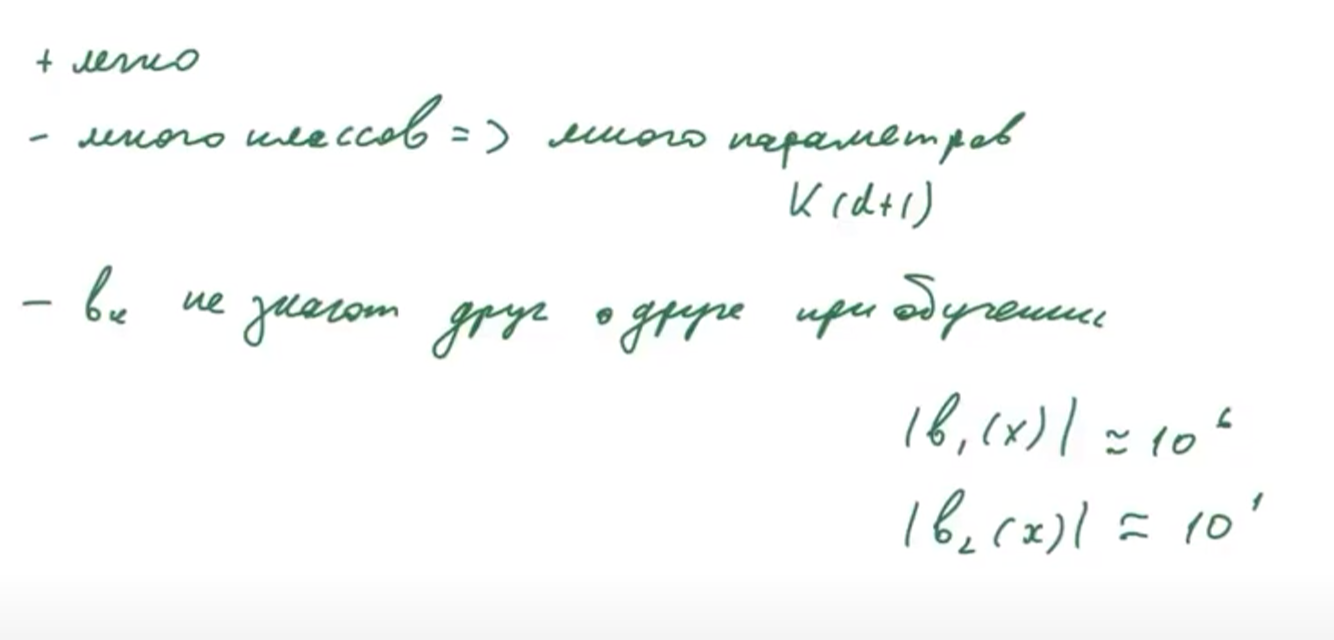 + легко
- много классов => много параметров
K(d+1)
- bₖ не знают друг о друге при обучении
|b₁(x)| ≈ 10⁶
|b₂(x)| ≈ 10¹